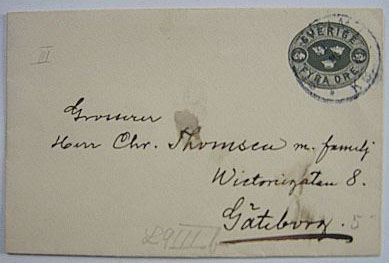 SVERIGE
FYRA ÖRE
III
Grosserer
Herr Chr. Thomsen m. familj
Wictoriegatan 8.
Göteborg.
5